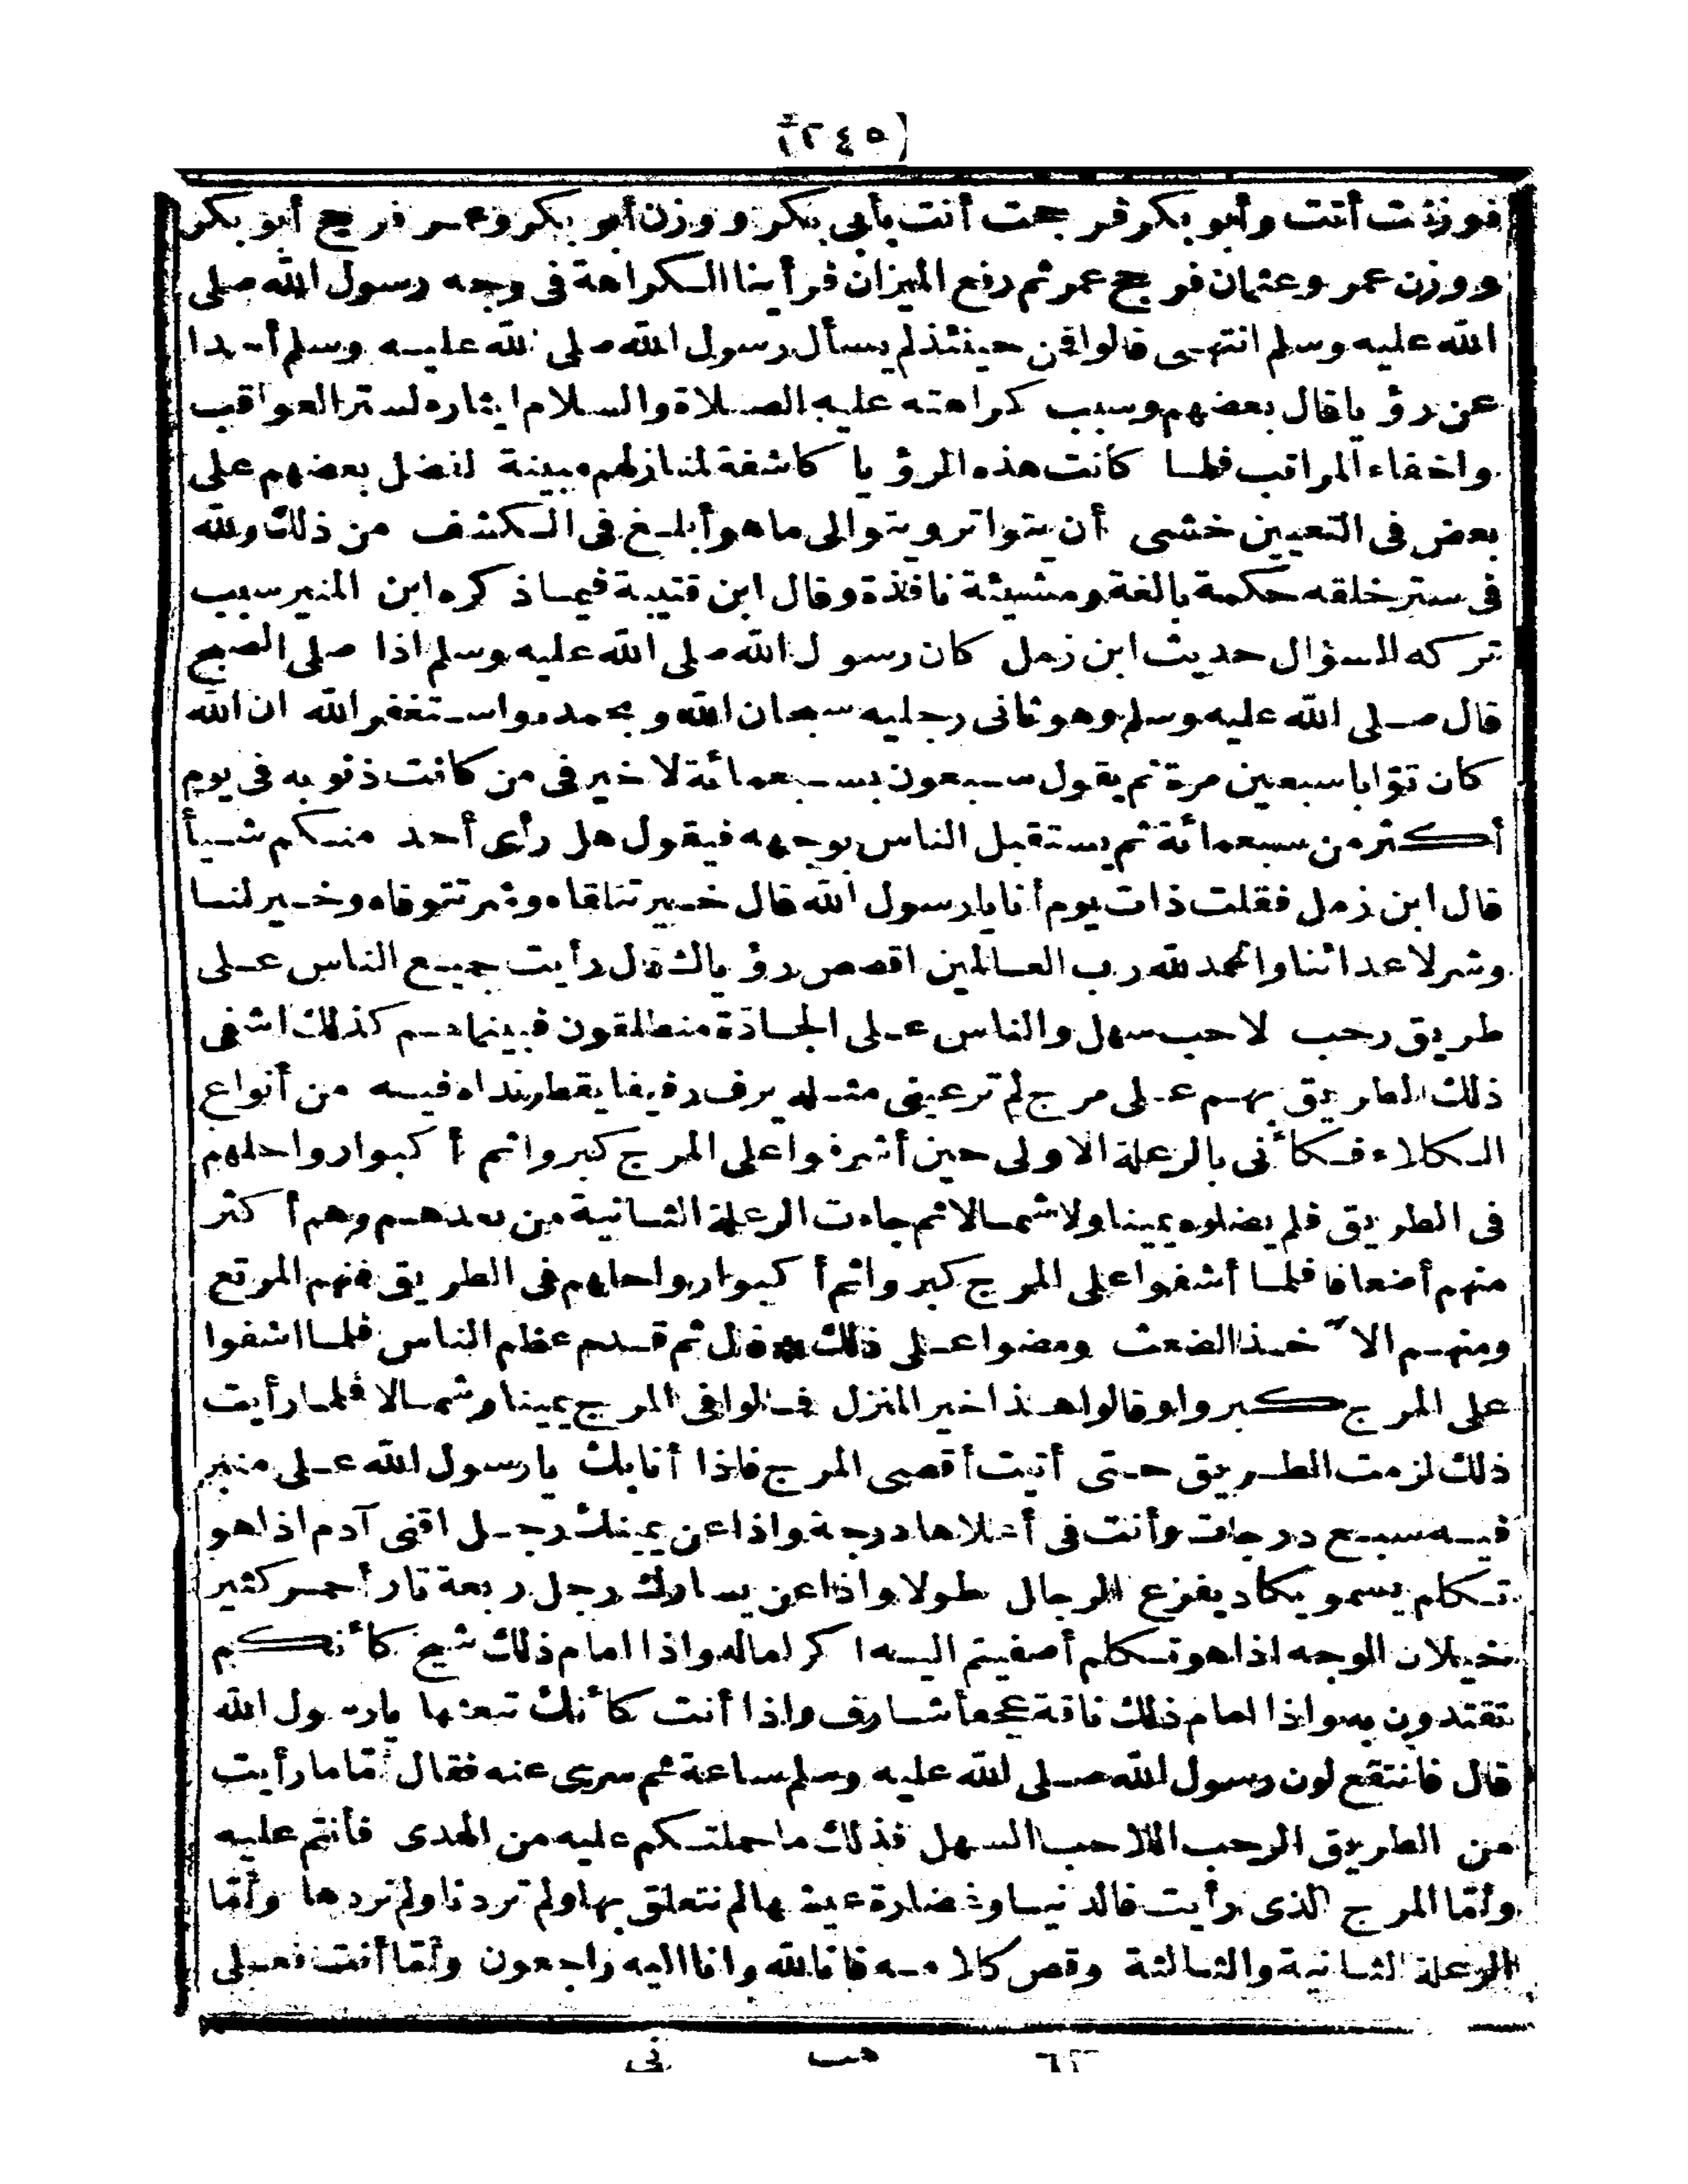 (٢٤٥)
فوزنت أنت وأبو بكر فرجحت أنت بأبى بكر ووزن أبو بكر وعمر فرجح أبو بكر
ووزن عمر وعثمان فرجح عمر ثم رفع الميزان فرأينا الكراهة فى وجه رسول الله صلى
الله عليه وسلم انتهى قالوا فمن حينئذ لم يسأل رسول الله صلى الله عليه وسلم أحدا
عن رؤيا قال بعضهم وسبب كراهته عليه الصلاة والسلام ايثاره لستر العواقب
واخفاء المراتب فلما كانت هذه الرؤيا كاشفة لمنازلهم مبينة لفضل بعضهم على
بعض فى التعيين خشى أن يتواتر ويتوالى ما هو أبلغ فى الكشف من ذلك ولله
فى ستر خلقه حكمة بالغة ومشيئة نافذة وقال ابن قتيبة فيما ذكره ابن المنير سبب
تركه السؤال حديث ابن زمل كان رسول الله صلى الله عليه وسلم اذا صلى الصبح
قال صلى الله عليه وسلم وهو ثانى رجليه سبحان الله وبحمده واستغفر الله ان الله
كان توّابا سبعين مرة ثم يقول سبعون بسبعمائة لا خير فى من كانت ذنوبه فى يوم
أكثر من سبعمائة ثم يستقبل الناس بوجهه فيقول هل رأى أحد منكم شيأ
قال ابن زمل فقلت ذات يوم أنا يا رسول الله قال خير تلقاه وشر تتوقاه وخير لنا
وشر لاعدائنا والحمد لله رب العالمين اقصص رؤياك قال رأيت جميع الناس على
طريق رحب لاحب سهل والناس على الجادّة منطلقون فبينما هم كذلك اشفى
ذلك الطريق بهم على مرج لم تر عينى مثله يرف رفيفا يقطر نداه فيه من أنواع
الكلاء فكأنى بالرعلة الاولى حين أشرفوا على المرج كبروا ثم أكبوا رواحلهم
فى الطريق فلم يضلوه يمينا ولا شمالا ثم جاءت الرعلة الثانية من بعدهم وهم أكثر
منهم أضعافا فلما أشفوا على المرج كبروا ثم أكبوا رواحلهم فى الطريق فنهم المرتع
ومنهم الآخذ الضعث ومضوا على ذلك * قال ثم قدم عظم الناس فلما اشفوا
على المرج كبروا وقالوا هذا خير المنزل فمالوا فى المرج يمينا وشمالا فلما رأيت
ذلك لزمت الطريق حتى أتيت أقصى المرج فاذا أنا بك يا رسول الله على منبر
فيه سبع درجات وأنت فى أعلاها درجة واذا عن يمينك رجل اقنى آدم اذا هو
تكلم يسمو يكاد يفزع الرجال طولا واذا عن يسارك رجل ربعة تار أحمر كثير
خيلان الوجه اذا هو تكلم أصغيتم اليه اكراما له واذا امام ذلك شيخ كأنكم
تقتدون به واذا امام ذلك ناقة عجفأ شارف واذا أنت كأنك تبعثها يا رسول الله
قال فانتقع لون رسول الله صلى الله عليه وسلم ساعة ثم سرى عنه فقال أمّا ما رأيت
من الطريق الرحب اللاحب السهل فذلك ما حملتكم عليه من الهدى فأنتم عليه
وأمّا المرج الذى رأيت فالدنيا وغضارة عيشها لم نتعلق بها ولم تردنا ولم نردها وأمّا
الرعلة الثانية والثالثة وقص كلامه فانا لله وانا اليه راجعون وأمّا أنت فعلى
٦٢ هب نى